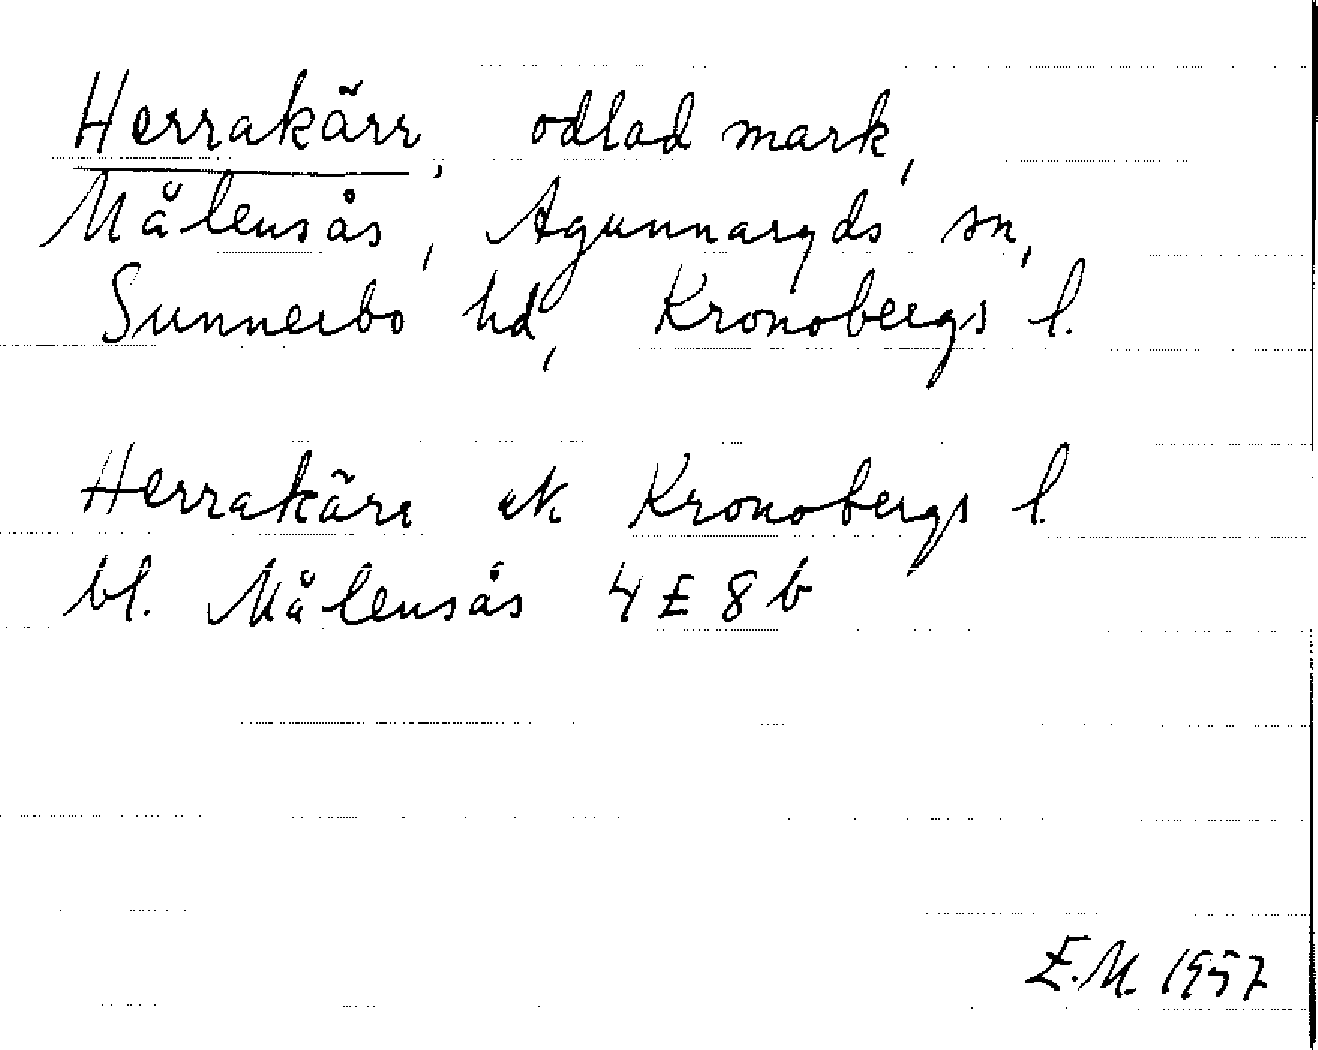 Herrakärr, odlad mark,
Målensås, Agunnaryds sn,
Sunnerbo hd, Kronobergs l.
Herrakärr ek Kronobergs l.
bl. Målensås 4 E 8 b
E.M. 1957